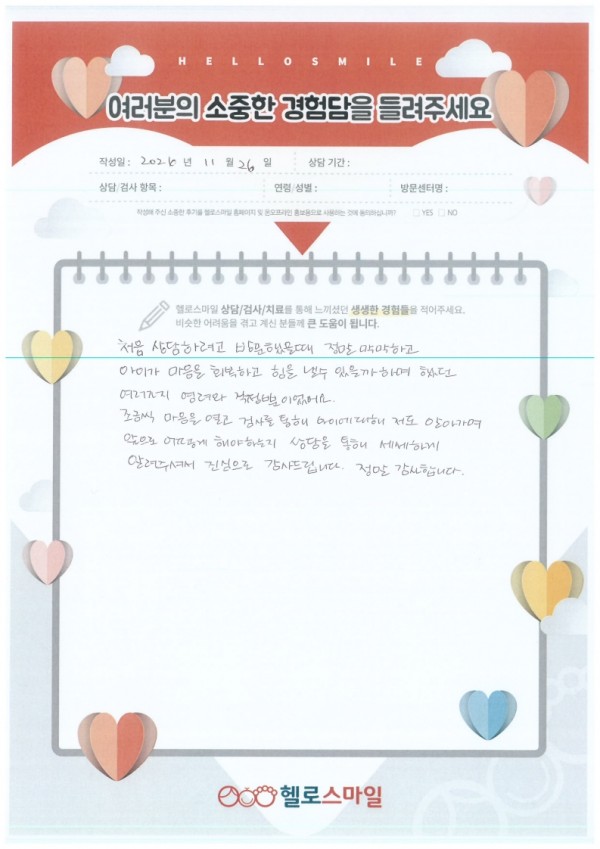 HELLOSMILE
여러분의 소중한 경험담을 들려주세요
작성일 : 2026 년 11 월 26 일 상담 기간 :
상담/검사 항목 : 연령/성별 : 방문센터명 :
작성해 주신 소중한 후기를 헬로스마일 홈페이지 및 온오프라인 홍보용으로 사용하는 것에 동의하십니까? □ YES □ NO
헬로스마일 상담/검사/치료를 통해 느끼셨던 생생한 경험들을 적어주세요.
비슷한 어려움을 겪고 계신 분들께 큰 도움이 됩니다.
처음 상담하려고 방문했을때 정말 막막하고
아이가 마음을 회복하고 힘을 낼수 있을까하며 했던
여러가지 염려와 걱정뿐이었어요.
조금씩 마음을 열고 검사를 통해 아이에대해 저도 알아가며
앞으로 어떻게 해야하는지 상담을 통해 세세하게
알려주셔서 진심으로 감사드립니다. 정말 감사합니다.
헬로스마일